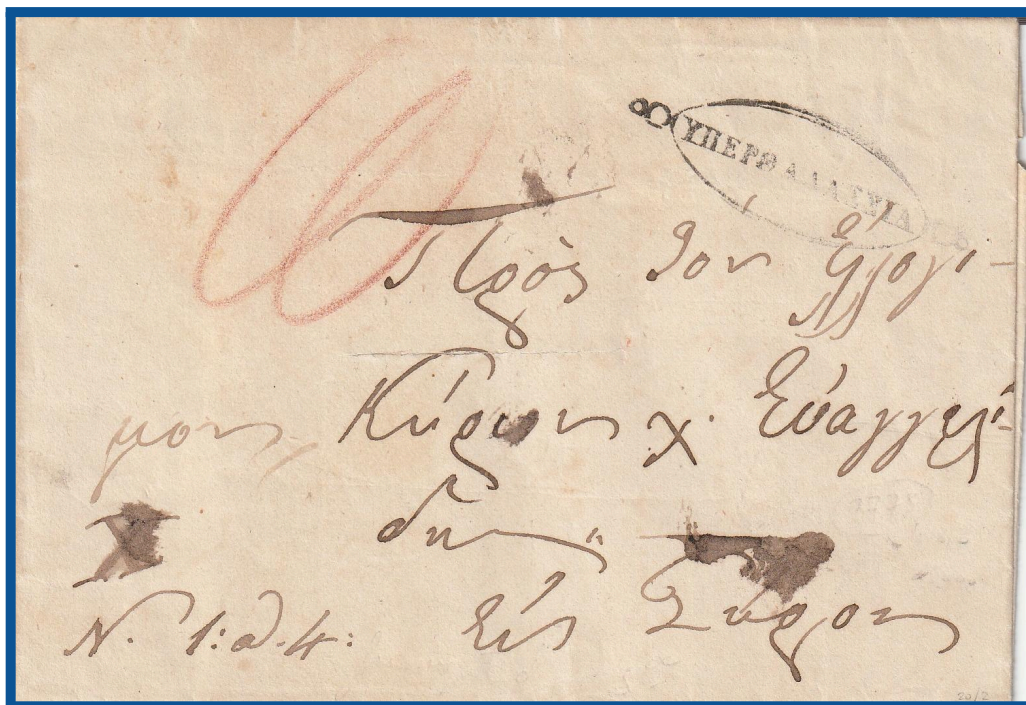 ΥΠΕΡΘΑΛΑΣΣΙΑ
Πρὸς τὸν Ἐλλόγι-
μον, Κύριον Χ. Εὐαγγελί-
δην
Ν. 1:
Εἰς Σύρον
20/2